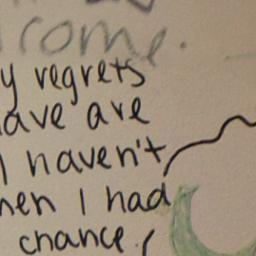 come.
y regrets
ave are
I haven't
hen I had
chance.